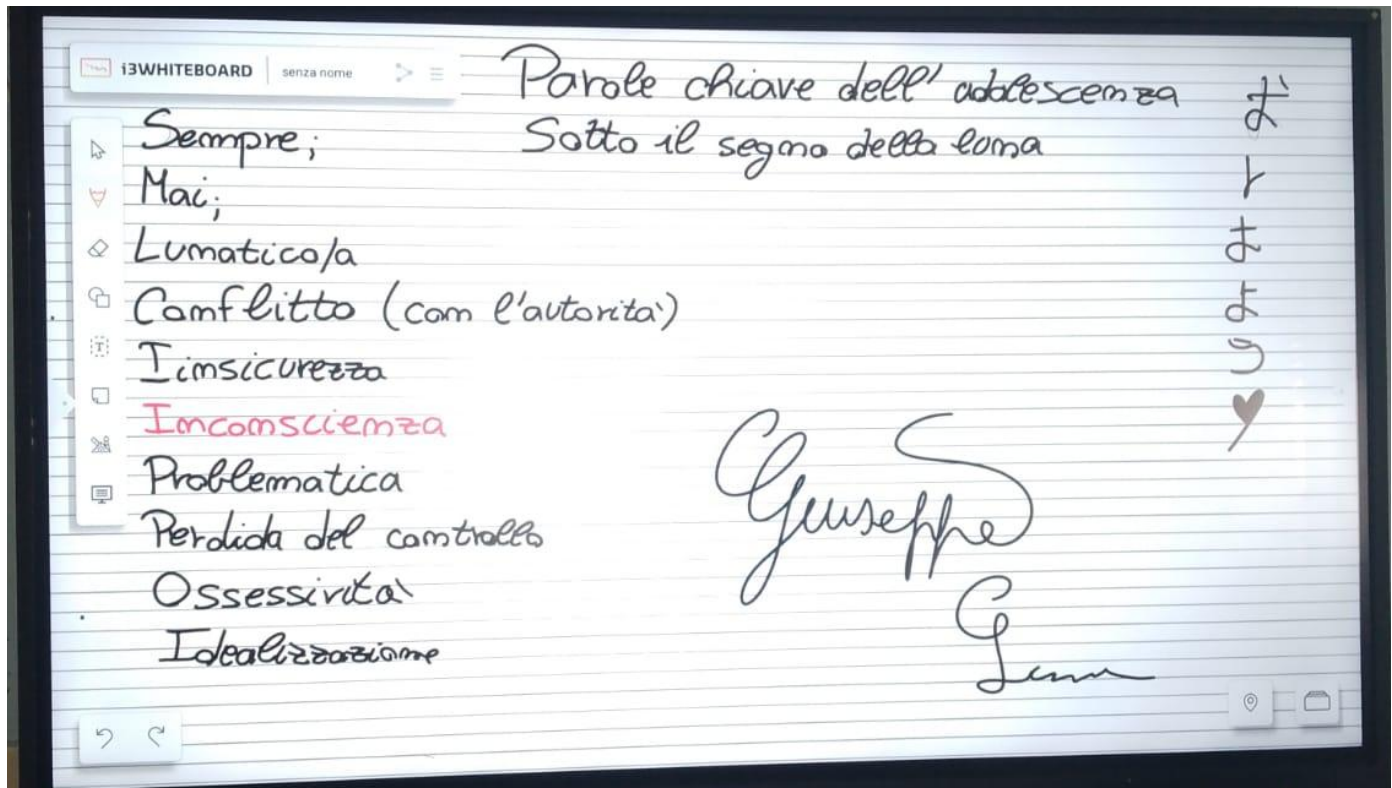 i3WHITEBOARD
senza nome
Parole chiave dell'adolescenza
Sotto il segno della luna
Sempre;
Mai;
Lunatico/a
Conflitto (con l'autorità)
Iinsicurezza
Inconscienza
Problematica
Perdida del controllo
Ossessività
Idealizzazione
Giuseppe